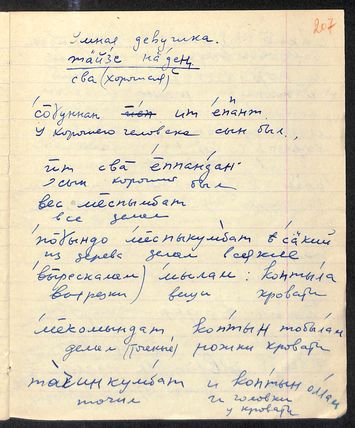 207
Умная девушка.
тӓйзе нӓдец
сва (хорошая)
со̄дыннан ит ӣппант
У хорошего человека сын был,
ӣт сва̄ е̄ппандан
сын хороший был
вес ме̄спымбат
все делал
по̄дындо ме̄спыкумбат всӓкий
из дерева делал всякие
вырезкалам) мылам: коптыла
вырезки) вещи кровати
ме̄комындат коптын тобылам
делал (точеные) ножки кровати
тачинкумбат и коптын оллам
точил и головки
у кровати